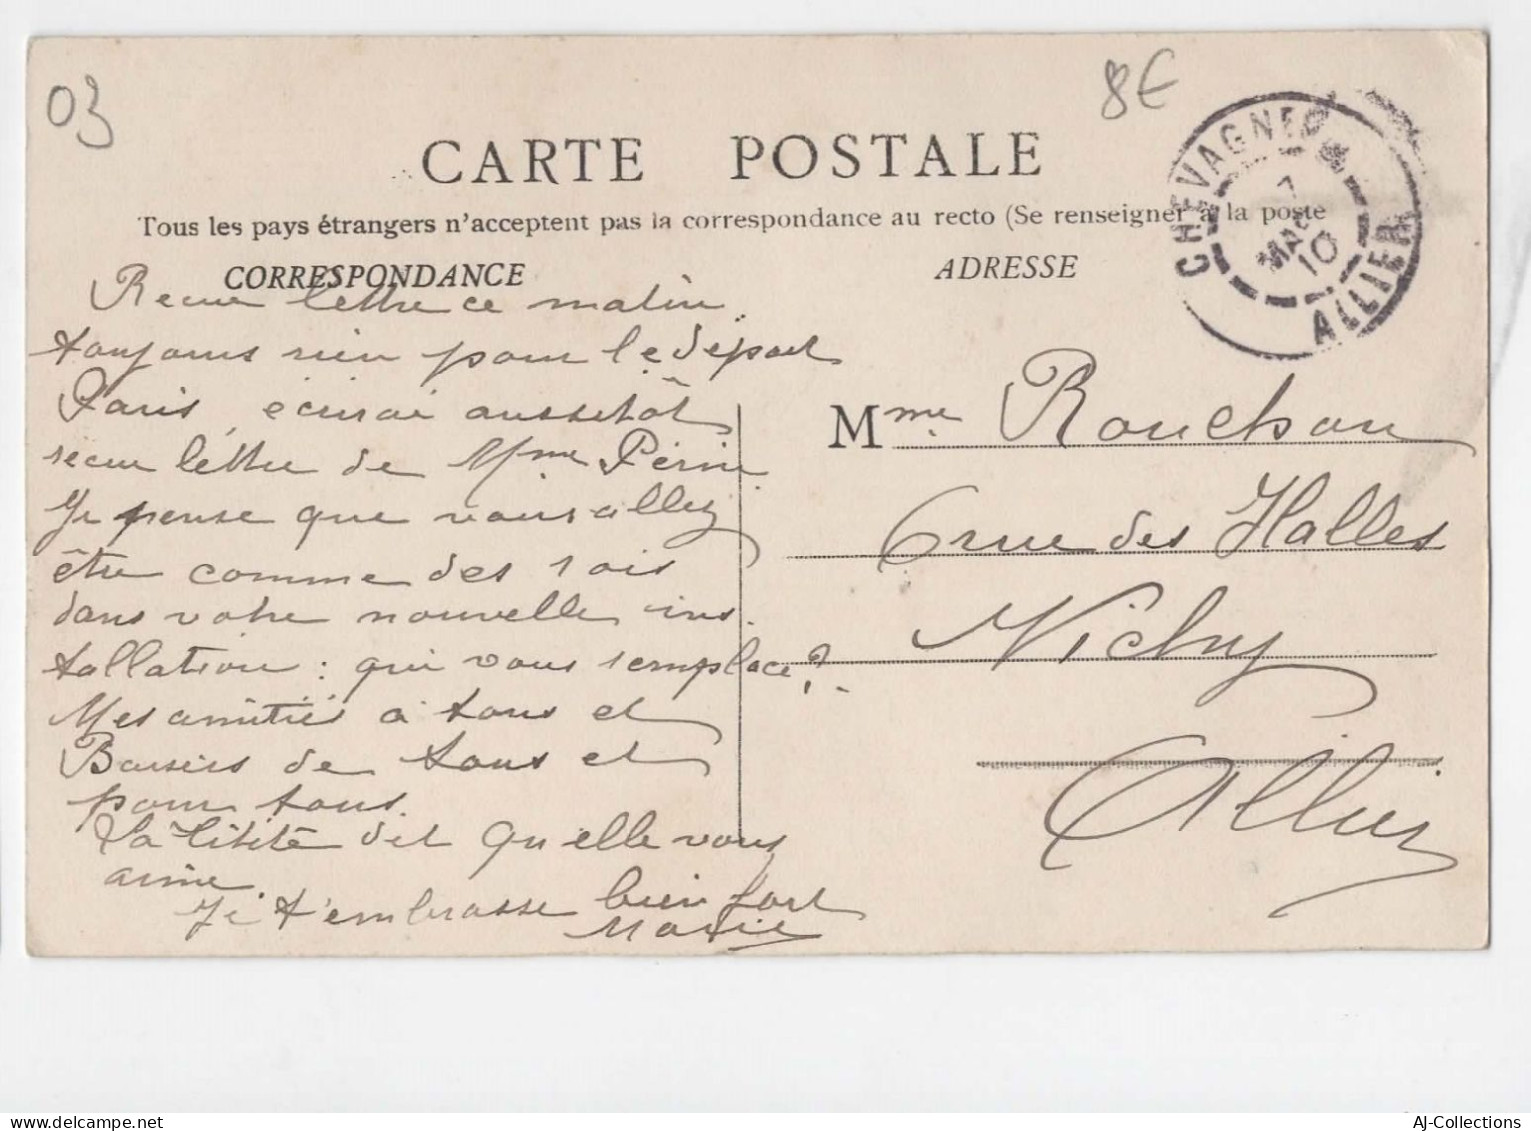 03
8€
CARTE POSTALE
Tous les pays étrangers n'acceptent pas la correspondance au recto (Se renseigner à la poste
CORRESPONDANCE
ADRESSE
CHEVAGNES
7
MAI
10
ALLIER
Recu lettre ce matin.
toujours rien pour le départ
Paris, écrirai aussitôt
recu lettre de Mme Périn.
Je pense que vous allez
être comme des rois
dans votre nouvelle ins.
tallation : qui vous remplace ?
Mes amitiés à tous et
Baisers de tous et
pour tous.
La Titite dit qu'elle vous
aime.
Je t'embrasse bien fort
Marie
Mme Rouchon
6 rue des Halles
Vichy
Allier
AJ-Collections